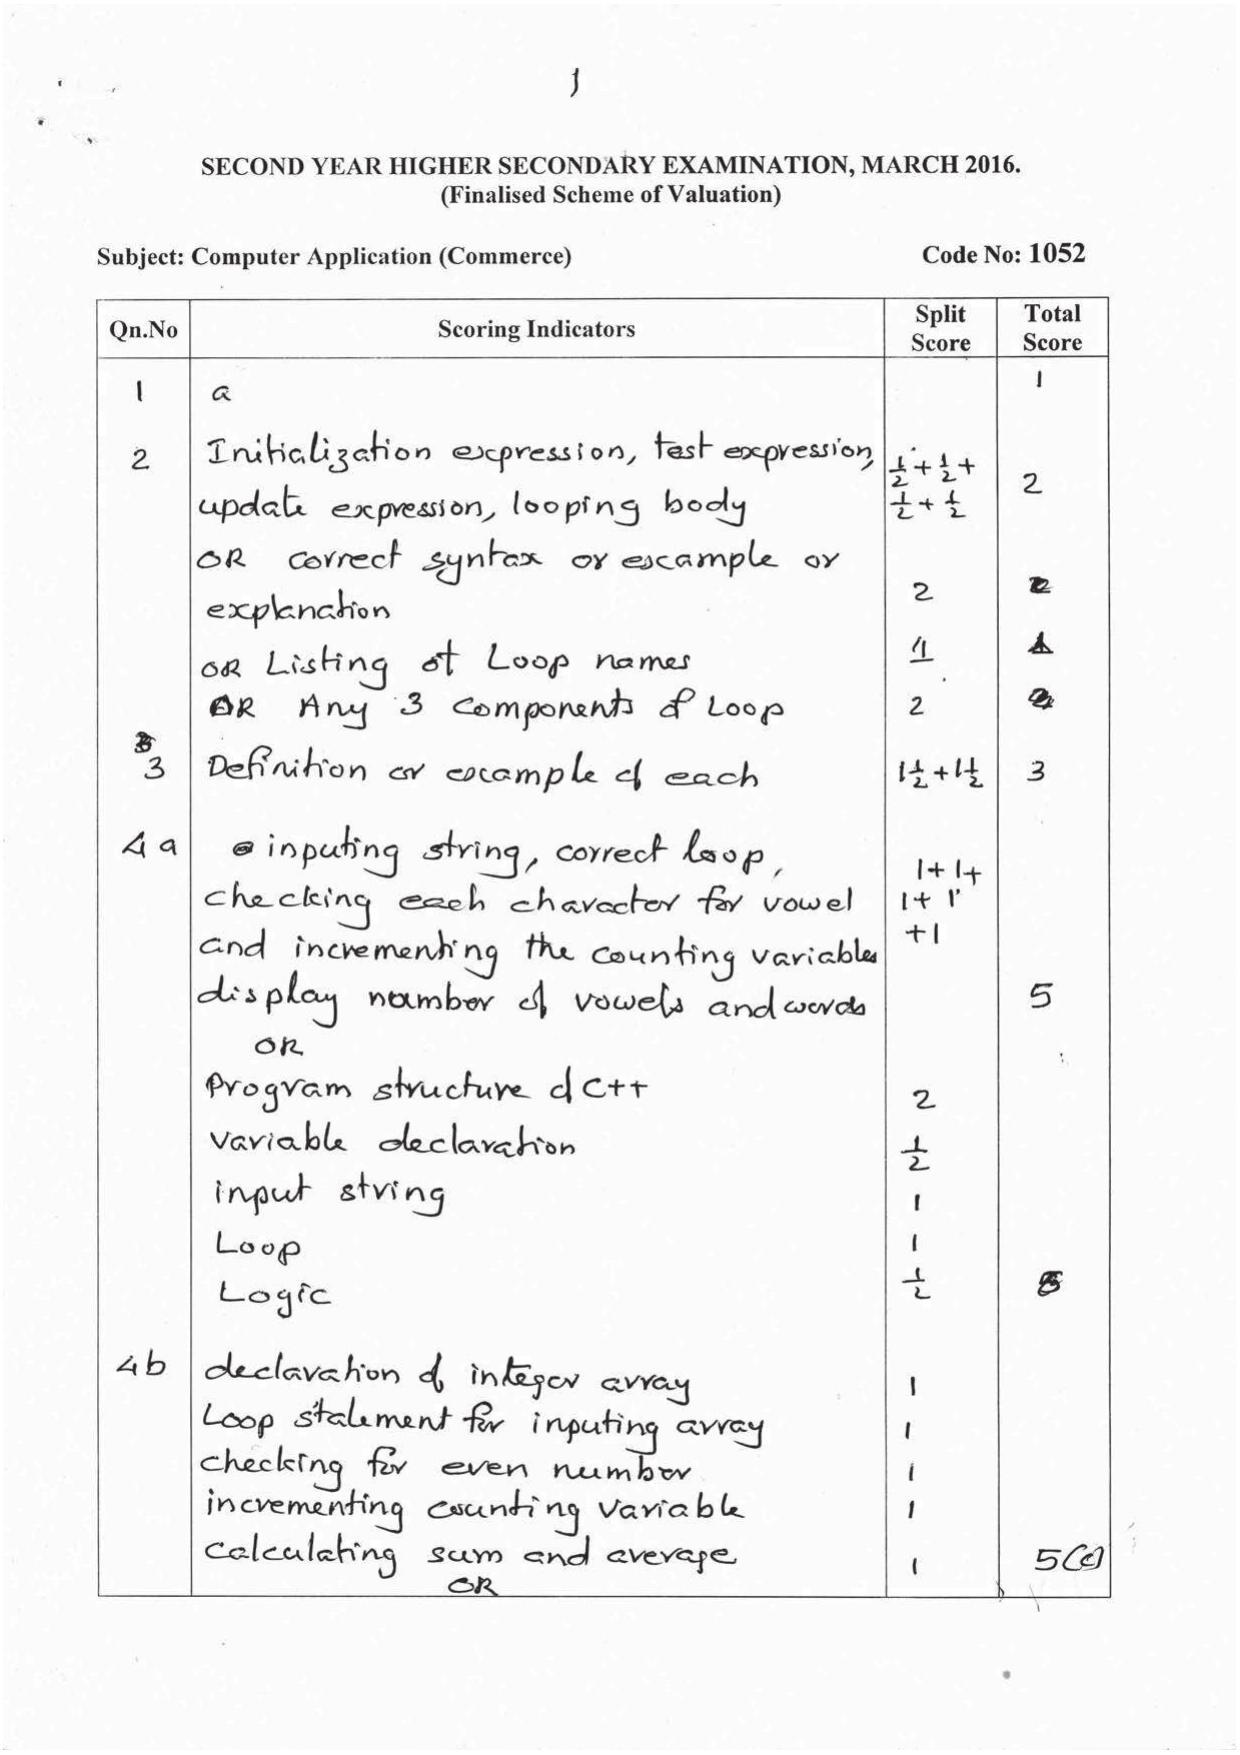 1
SECOND YEAR HIGHER SECONDARY EXAMINATION, MARCH 2016.
(Finalised Scheme of Valuation)
Subject: Computer Application (Commerce) Code No: 1052
Qn.No Scoring Indicators Split Score Total Score
1 a 1
2 Initialization expression, test expression, ½ + ½ +
update expression, looping body ½ + ½ 2
OR correct syntax or example or
explanation 2
OR Listing of Loop names 1
OR Any 3 components of Loop 2
3 Definition or example of each 1½ + 1½ 3
4a inputing string, correct loop, 1+1+
checking each character for vowel 1+1
and incrementing the counting variables +1
display number of vowels and words 5
OR
Program structure of C++ 2
variable declaration ½
input string 1
Loop 1
Logic ½
4b declaration of integer array 1
Loop statement for inputing array 1
checking for even number 1
incrementing counting variable 1
calculating sum and average 1 5
OR